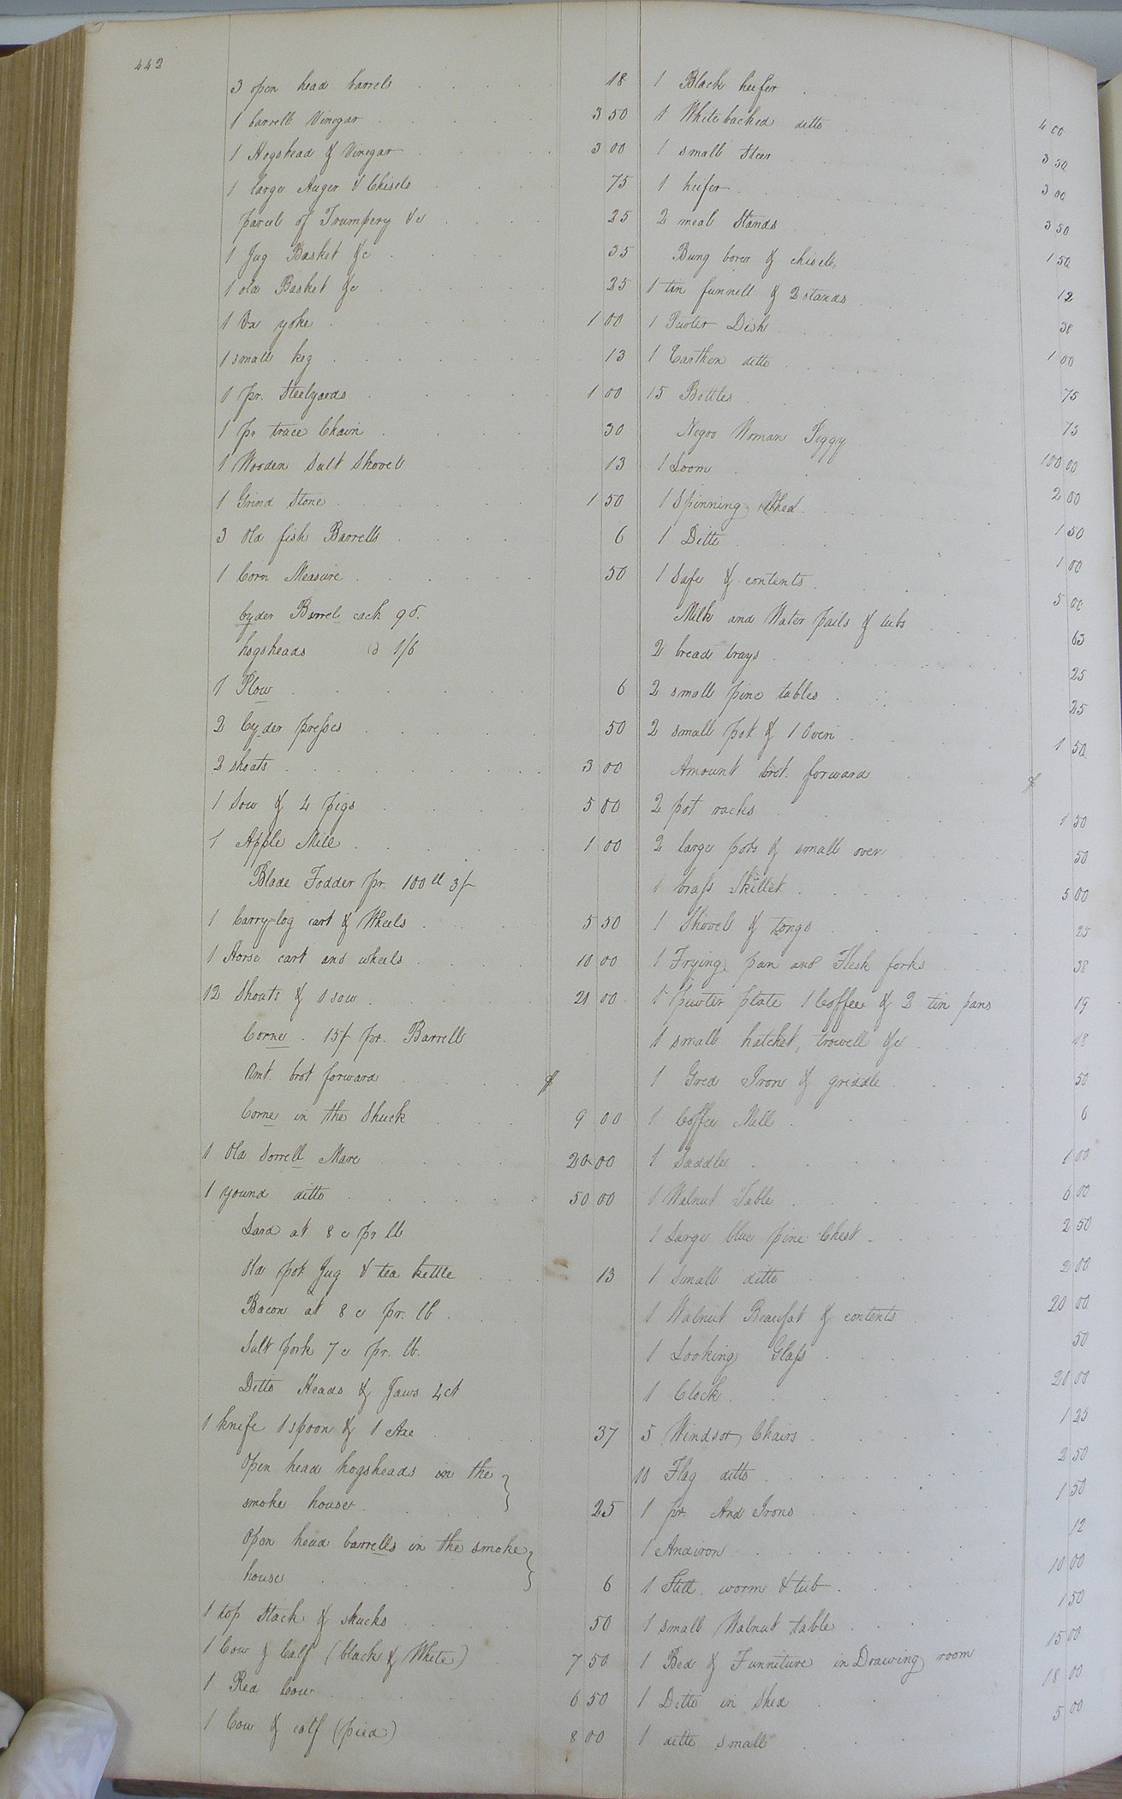 442
3 open head barrels 18
1 barrell Vinegar 3 50
1 Hogshead & Vinegar 3 00
1 large Auger & Chisels 75
parcel of Trumpery &c 25
1 Jug Basket &c 35
1 old Basket &c 25
1 Ox yoke 1 00
1 small keg 13
1 pr. Steelyards 1 00
1 pr trace Chain 30
1 Wooden Salt Shovell 13
1 Grind Stone 1 50
3 Old fish Barrells 6
1 Corn Measure 50
Cyder Barrel each 9d.
hogsheads @ 1/6
1 Plow 6
2 Cyder presses 50
2 shoats 3 00
1 Sow & 4 pigs 5 00
1 Apple Mill 1 00
Blade Fodder pr. 100 ll 3/-
1 Carry-log cart & Wheels 5 50
1 Horse cart and wheels 10 00
12 Shoats & 1 sow 21 00
Corne. 15/- pr. Barrell
Amt. brot forward $
Corne in the Shuck 9 00
1 Old Sorrell Mare 20 00
1 yound ditto 50 00
Lard at 8 c pr lb
Old pot Jug & tea kettle 13
Bacon at 8 c pr. lb
Salt pork 7 c pr. lb.
Ditto Heads & Jaws 4 ct
1 knife 1 spoon & 1 Axe 37
Open head hogsheads in the
smoke house 25
Open head barrells in the smoke
house 6
1 top Stack & shucks 50
1 Cow & Calf (black & White) 7 50
1 Red Cow 6 50
1 Cow & calf (pied) 8 00
1 Black heifer 4 00
1 Whitebacked ditto 3 50
1 small Steer 3 00
1 heifer 3 50
2 meal Stands 1 50
Bung borer & chisels 12
1 tin funnell & 2 stands 38
1 Puter Dish 1 00
1 Earthen ditto 75
15 Bottles 75
Negro Woman Peggy 100 00
1 Loom 2 00
1 Spinning Wheel 1 50
1 Ditto 1 00
1 Safe & contents 5 00
Milk and Water pails & tubs 63
2 bread trays 25
2 small pine tables 25
2 small pot & 1 Oven 1 50
Amount brot. forward $
2 pot racks 1 50
2 large pots & small oven 50
1 brass Skillet 5 00
1 Shovel & tongs 25
1 Frying pan and Flesh forks 38
1 pewter plate 1 Coffee & 2 tin pans 19
1 small hatchet, trowell &c 18
1 Gred Iron & griddle 50
1 Coffee Mill 6
1 Saddle 1 00
1 Walnut Table 6 00
1 Large blue pine Chest 2 50
1 small ditto 2 00
1 Walnut Beaufat & contents 20 00
1 Looking Glass 50
1 Clock 20 00
5 Windsor Chairs 1 25
10 Flag ditto 2 50
1 pr. And Irons 1 50
1 Andiron 12
1 Still, worm & tub 10 00
1 small Walnut table 1 50
1 Bed & Furniture in Drawing room 15 00
1 Ditto in Shed 18 00
1 ditto small 5 00